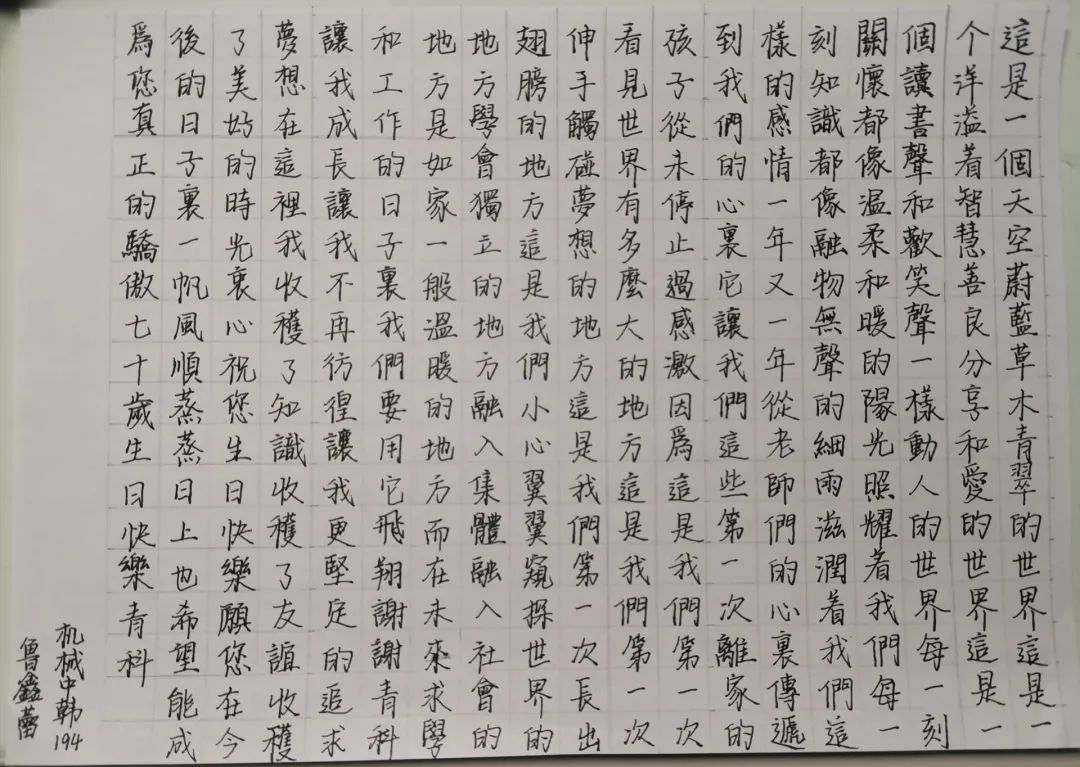 這是一個天空蔚藍草木青翠的世界這是一
个洋溢着智慧善良分享和愛的世界這是一
個讀書聲和歡笑聲一樣動人的世界每一刻
關懷都像溫柔和暖的陽光照耀着我們每一
刻知識都像融物無聲的細雨滋潤着我們這
樣的感情一年又一年從老師們的心裏傳遞
到我們的心裏它讓我們這些第一次離家的
孩子從未停止過感激因爲這是我們第一次
看見世界有多麼大的地方這是我們第一次
伸手觸碰夢想的地方這是我們第一次長出
翅膀的地方這是我們小心翼翼窺探世界的
地方學會獨立的地方融入集體融入社會的
地方是如家一般溫暖的地方而在未來求學
和工作的日子裏我們要用它飛翔謝謝青科
讓我成長讓我不再彷徨讓我更堅定的追求
夢想在這裡我收穫了知識收穫了友誼收穫
了美好的時光衷心祝您生日快樂願您在今
後的日子裏一帆風順蒸蒸日上也希望能成
爲您真正的驕傲七十歲生日快樂青科
机械中韩194
魯鑫蕾